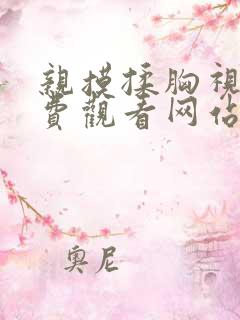 親摸揉胸視
費觀看网佔
奧尼